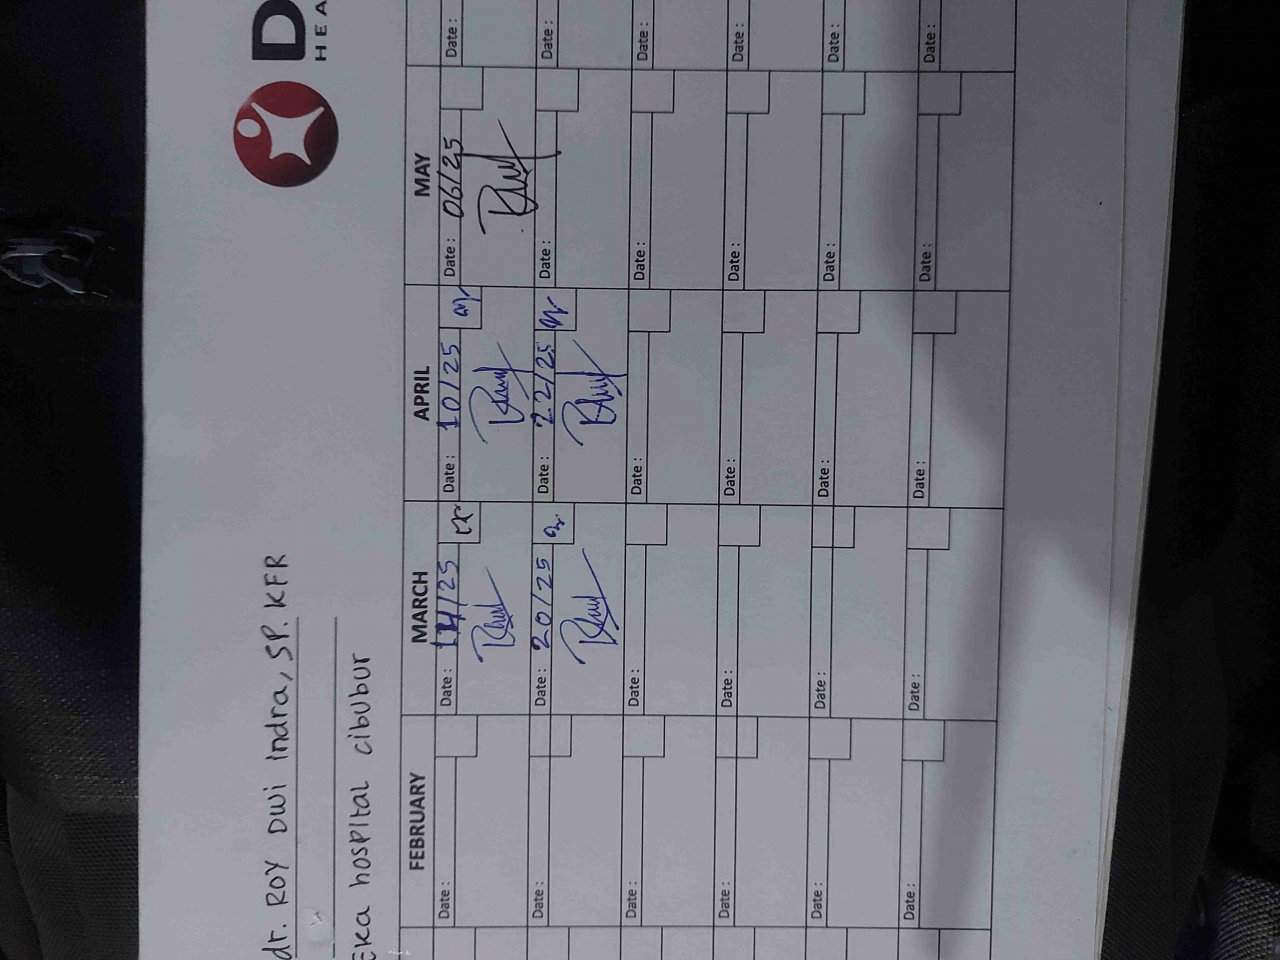 D
HEA
dr. ROY DWI indra, SP. KFR
Eka hospital cibubur
FEBRUARY MARCH APRIL MAY
Date : Date : 25 Date : 10/25 Date : 06/25 Date :
Date : Date : 20/25 Date : 22/25 Date : Date :
Date : Date : Date : Date : Date :
Date : Date : Date : Date : Date :
Date : Date : Date : Date : Date :
Date : Date : Date : Date : Date :